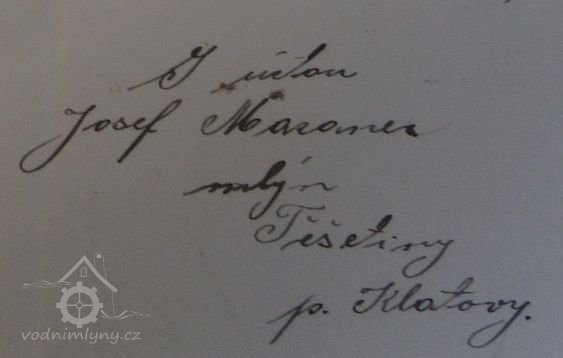 S úctou
Josef Mazanec
mlýn
Těšetiny
p. Klatovy.
vodnimlyny.cz